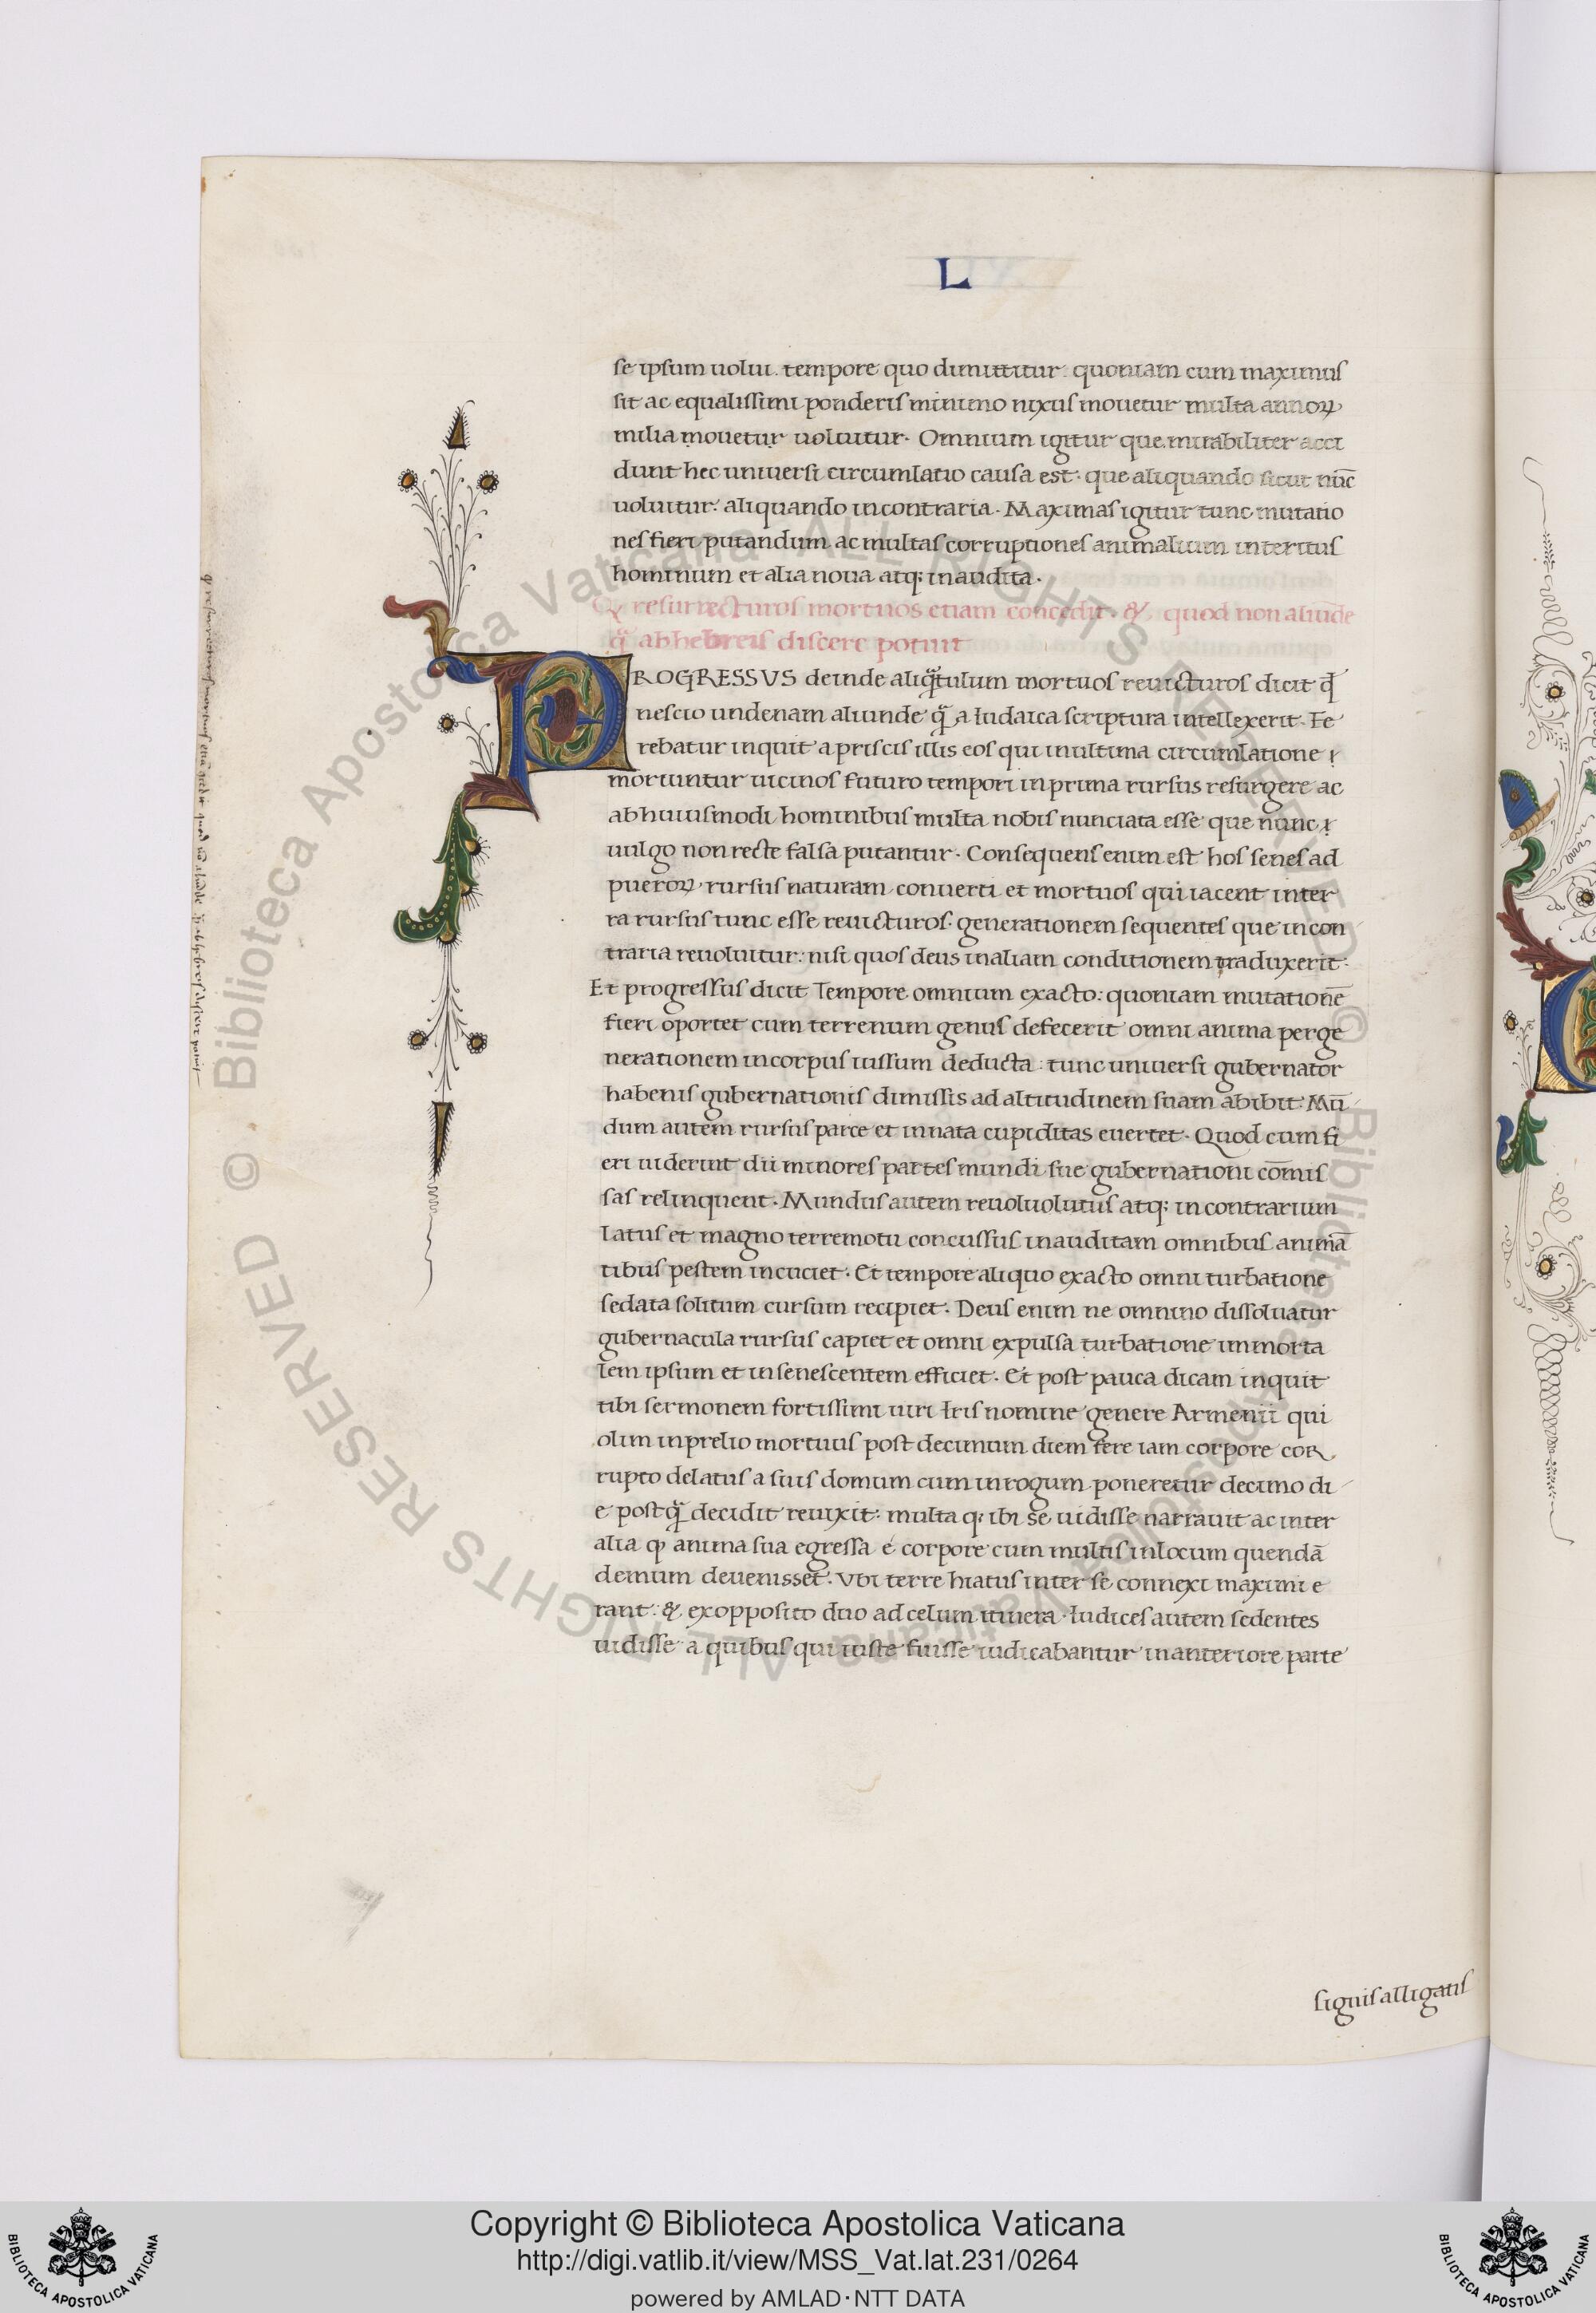 L
se ipsum uolui. tempore quo dimittitur. quoniam cum maximus
sit ac equalissimi ponderis minimo nixus mouetur multa annoꝝ
milia mouetur uoluitur. Omnium igitur que mirabiliter acci
dunt hec uniuersi circumlatio causa est. que aliquando sicut nūc
uoluitur. aliquando incontraria. Maximas igitur tunc mutatio
nes fieri putandum ac multas corruptiones animalium interitus
hominum et alia noua atq; inaudita.
Q resurrecturos mortuos etiam concedit. & quod non aliūde
q̃ abhebreis discere potuit
PROGRESSVS deinde aliq̃tulum mortuos reuicturos dicit q̄
nescio undenam aliunde q̃ a Iudaica scriptura intellexerit. Fe
rebatur inquit a priscis illis eos qui inultima circumlatione
moriuntur uicinos futuro tempori inprima rursus resurgere ac
abhuiusmodi hominibus multa nobis nunciata esse que nunc
uulgo non recte falsa putantur. Consequens enim est hos senes ad
pueroꝝ rursus naturam conuerti et mortuos qui iacent inter
ra rursus tunc esse reuicturos. generationem sequentes que incon
traria reuoluitur: nisi quos deus inaliam conditionem traduxerit.
Et progressus dicit Tempore omnium exacto: quoniam mutationē
fieri oportet cum terrenum genus defecerit omni anima perge
nerationem incorpus iussum deducta: tunc uniuersi gubernator
habenis gubernationis dimissis ad altitudinem suam abibit. Mū
dum autem rursus parce et innata cupiditas euertet. Quod cum fi
eri uiderint dii minores partes mundi sue gubernationi cōmis
sas relinquent. Mundus autem reuoluolutus atq; in contrarium
latus et magno terremotu concussus inauditam omnibus animā
tibus pestem incuciet. Et tempore aliquo exacto omni turbatione
sedata solitum cursum recipiet. Deus enim ne omnino dissoluatur
gubernacula rursus capiet et omni expulsa turbatione immorta
lem ipsum et insenescentem efficiet. Et post pauca dicam inquit
tibi sermonem fortissimi uiri Iris nomine genere Armenii qui
olim inprelio mortuus post decimum diem fere iam corpore cor
rupto delatus a suis domum cum inrogum poneretur decimo di
e postq̃ decidit reuixit: multa q; ibi se uidisse narrauit ac inter
alia ꝙ anima sua egressa e corpore cum multis inlocum quendā
demum deuenisset. Vbi terre hiatus inter se connexi maximi e
rant. & exopposito duo ad celum itinera. Iudices autem sedentes
uidisse a quibus qui iuste fuisse iudicabantur inanteriore parte
signis alligatis
© Biblioteca Apostolica Vaticana ALL RIGHTS RESERVED
© Biblioteca Apostolica Vaticana ALL RIGHTS RESERVED
Copyright © Biblioteca Apostolica Vaticana
http://digi.vatlib.it/view/MSS_Vat.lat.231/0264
powered by AMLAD·NTT DATA
BIBLIOTECA APOSTOLICA VATICANA
BIBLIOTECA APOSTOLICA VATICANA